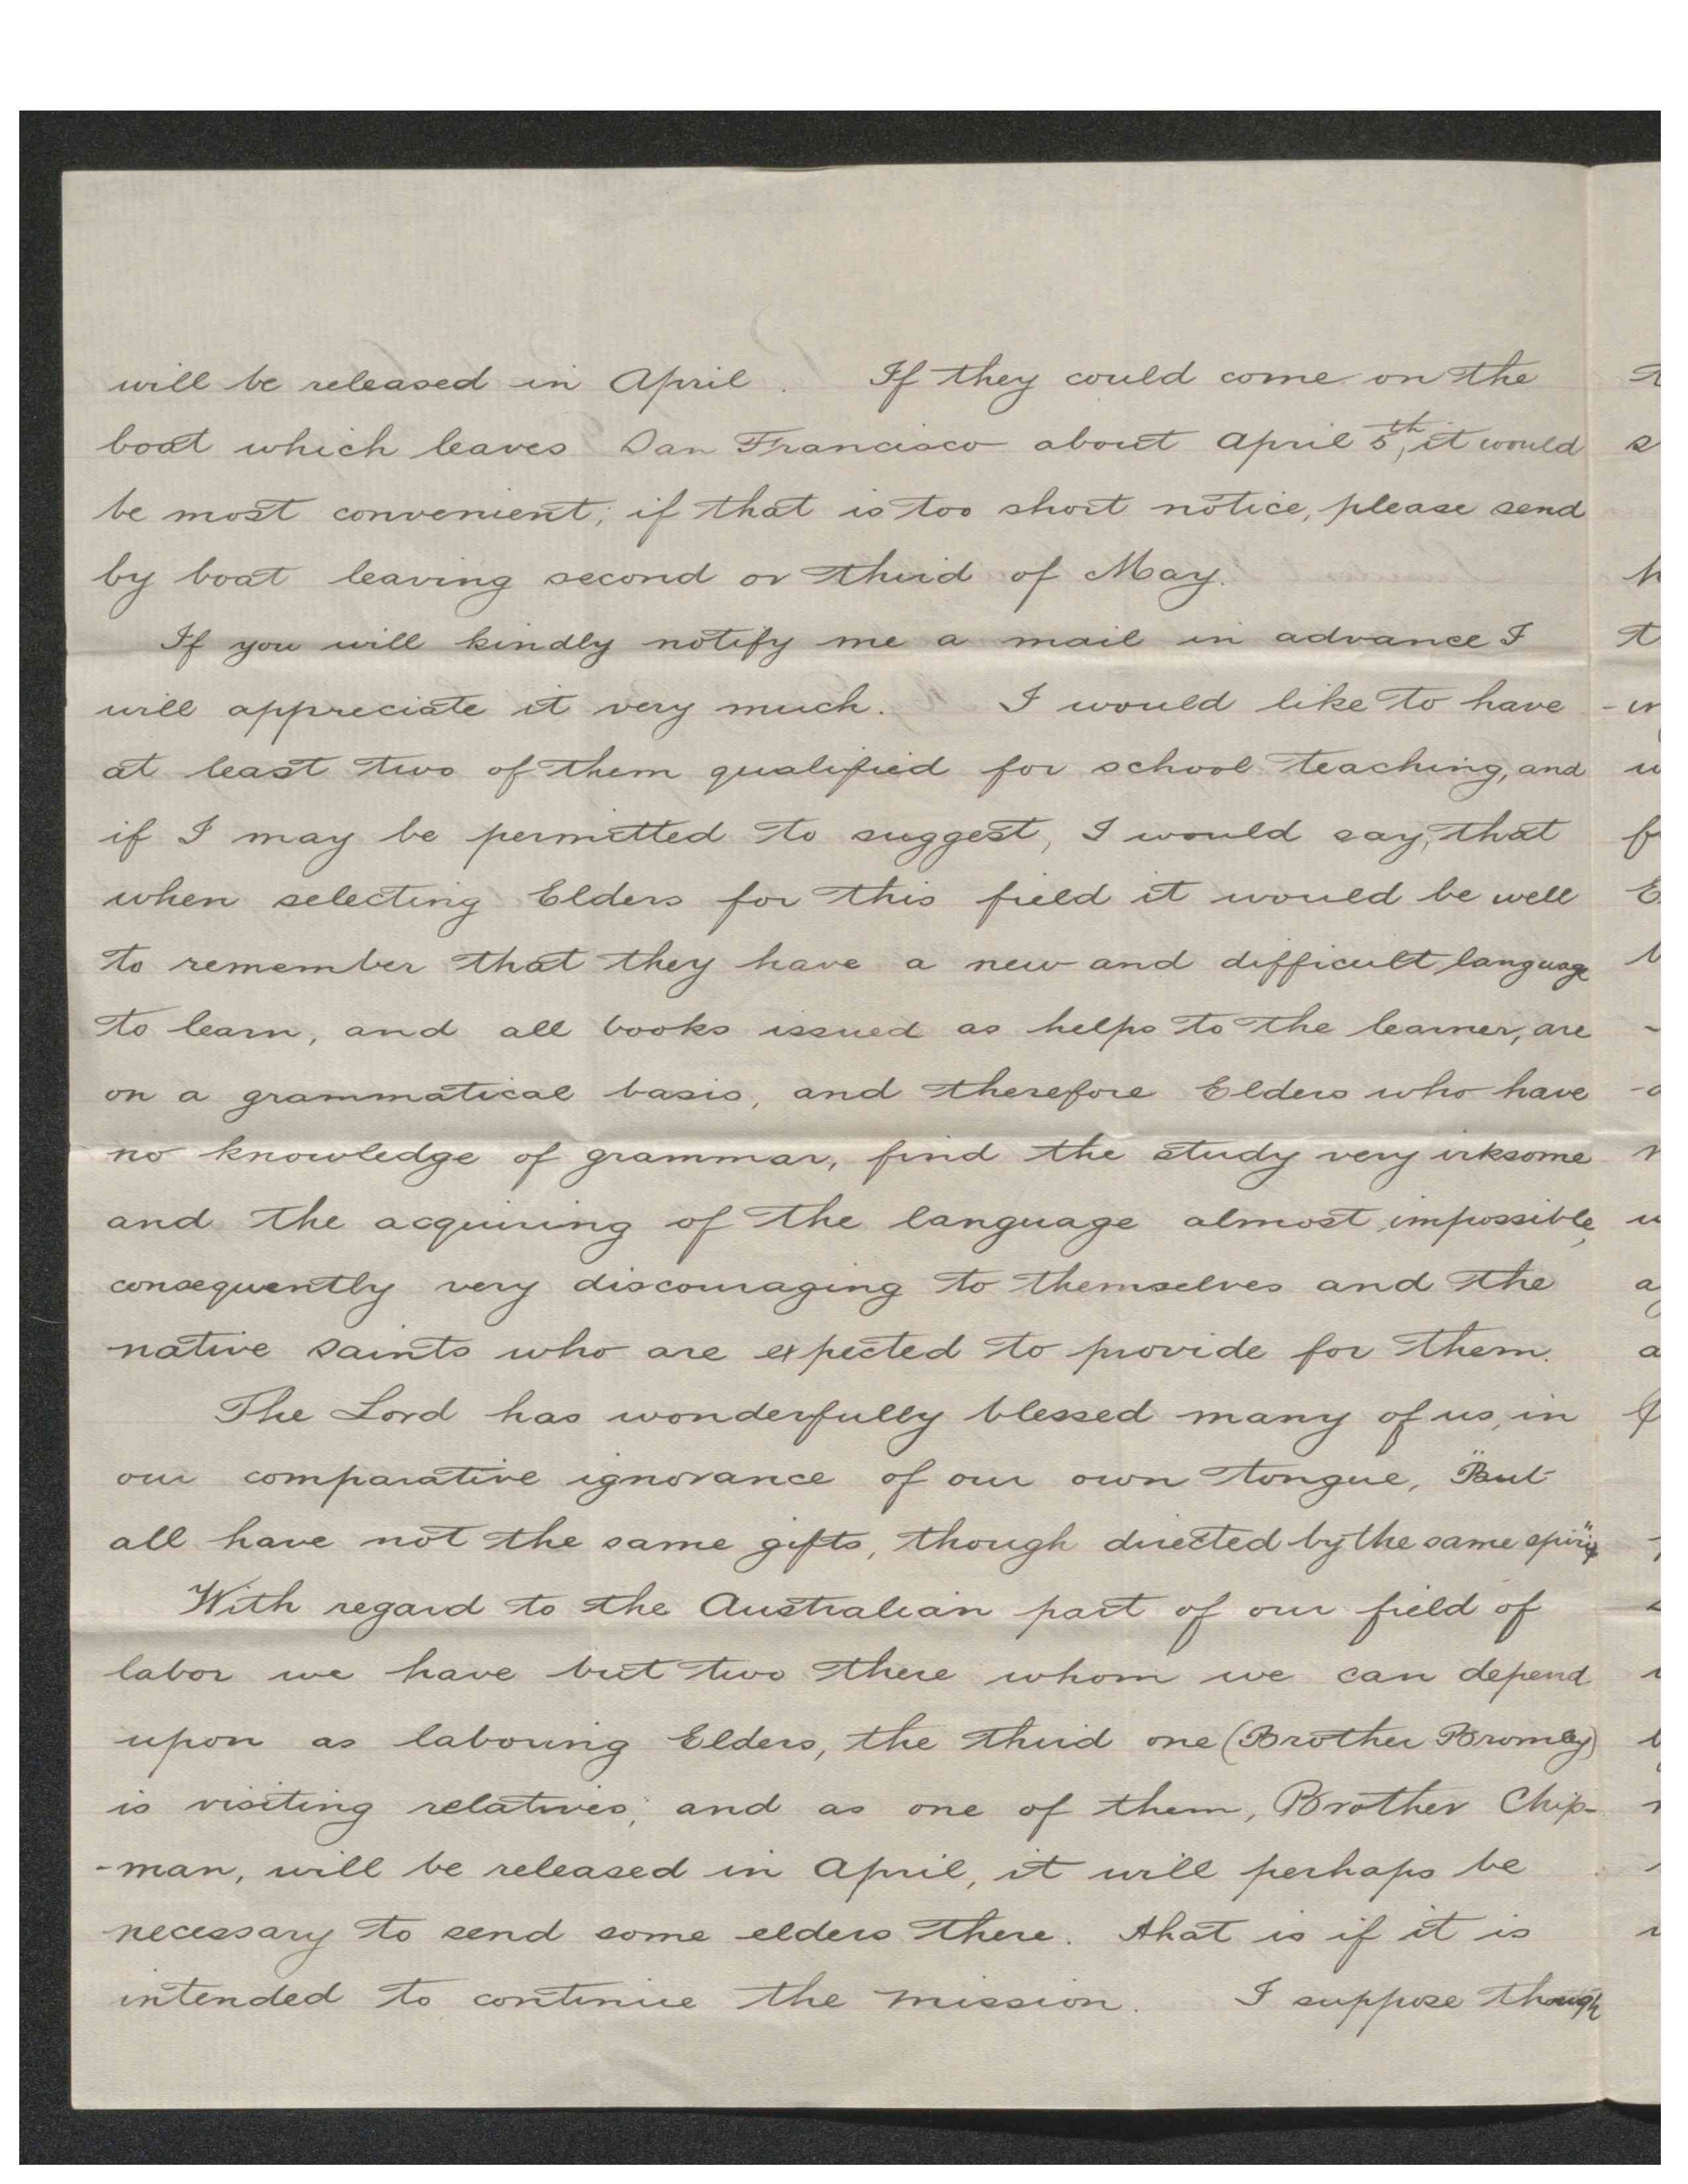 will be released in April. If they could come on the
boat which leaves San Francisco about April 5th, it would
be most convenient; if that is too short notice, please send
by boat leaving second or third of May.
If you will kindly notify me a mail in advance I
will appreciate it very much. I would like to have
at least two of them qualified for school teaching, and
if I may be permitted to suggest, I would say, that
when selecting Elders for this field it would be well
to remember that they have a new and difficult language
to learn, and all books issued as helps to the learner, are
on a grammatical basis, and therefore Elders who have
no knowledge of grammar, find the study very irksome
and the acquiring of the language almost impossible,
consequently very discouraging to themselves and the
native saints who are expected to provide for them.
The Lord has wonderfully blessed many of us, in
our comparative ignorance of our own tongue, "But
all have not the same gifts, though directed by the same spirit"
With regard to the Australian part of our field of
labor we have but two there whom we can depend
upon as labouring Elders, the third one (Brother Bromley)
is visiting relatives; and as one of them, Brother Chip-
-man, will be released in April, it will perhaps be
necessary to send some elders there. that is if it is
intended to continue the mission. I suppose though